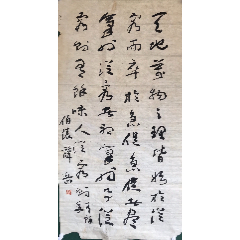 天地萬物之理皆始於從
容而卒於急促急促者盡
氣也從容者初氣也事從
容則有餘味人從容則有餘年
伯陵 薛岳